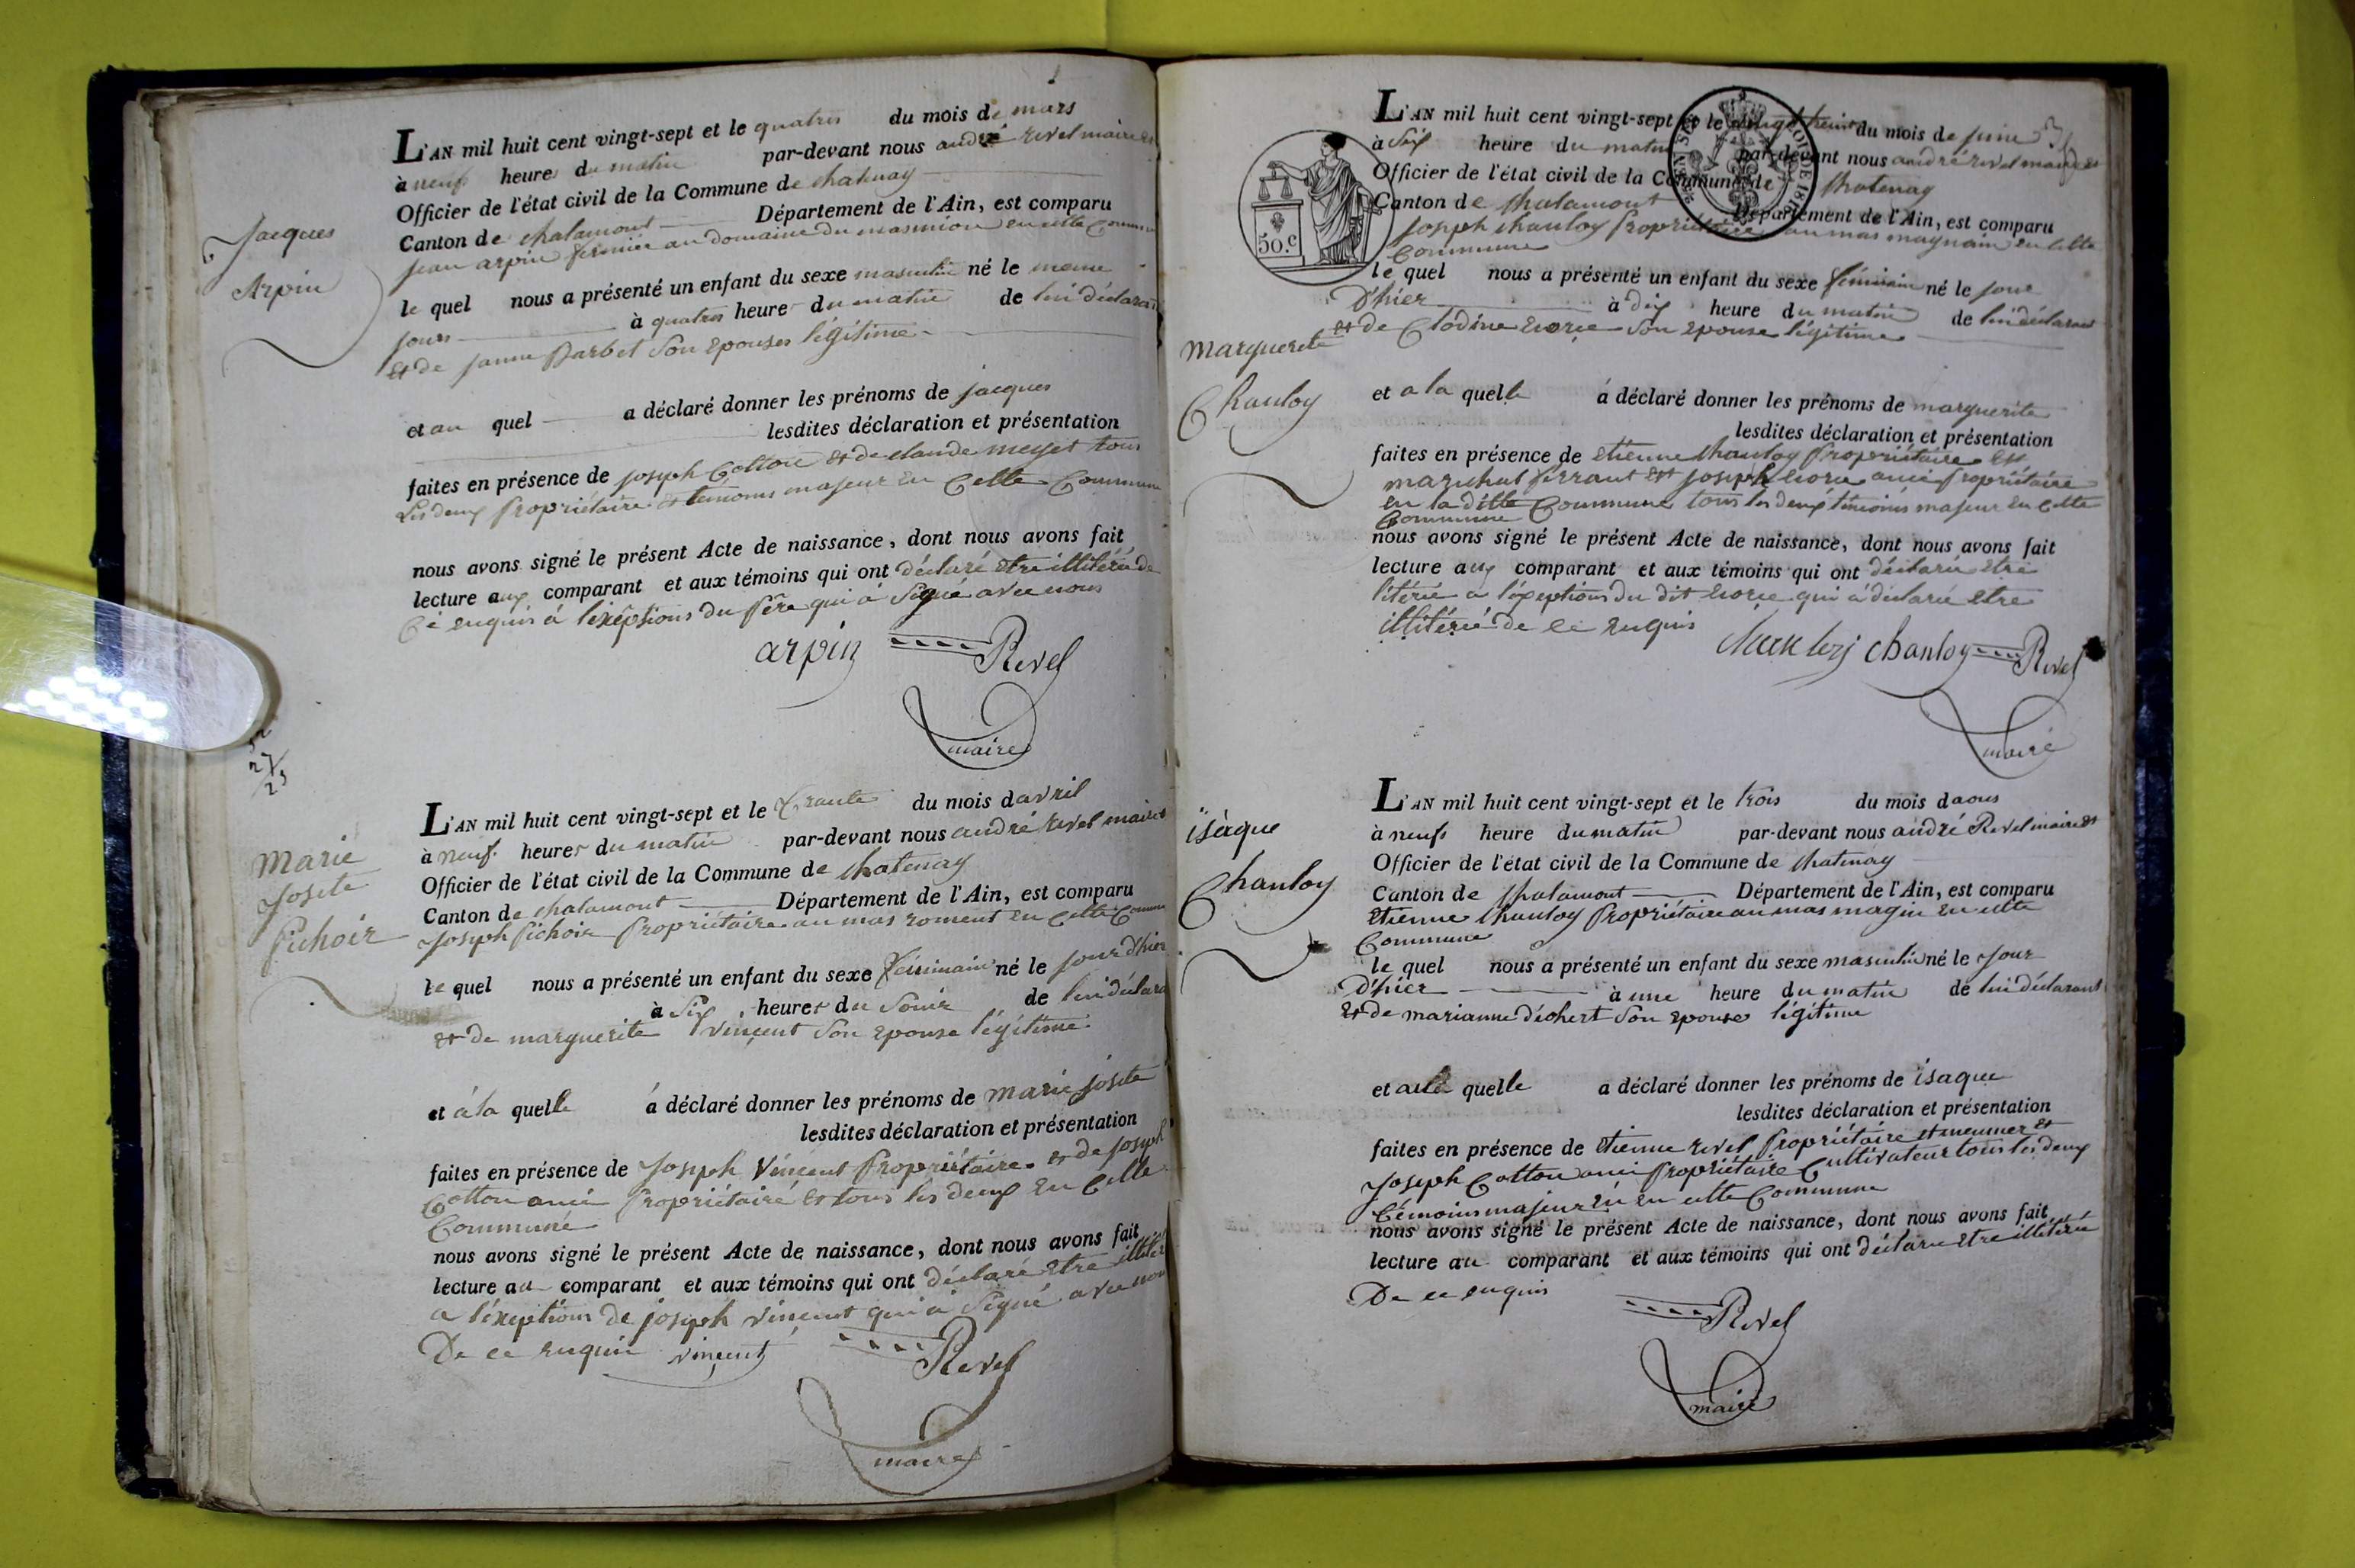 L'AN mil huit cent vingt-sept et le quatres du mois de mars
à neuf heures du matin par-devant nous andré revel maire et
Officier de l'état civil de la Commune de chatenay
Canton de chalamont Département de l'Ain, est comparu
jean arpin fermier au domaine du masmion en cette Commune
le quel nous a présenté un enfant du sexe masculin né le meme
jours à quatres heures du matin de lui déclarant
et de janne Barbet son epouses légitime
et au quel a déclaré donner les prénoms de jacques
lesdites déclaration et présentation
faites en présence de joseph Cotton et de claude meyset tous
Les deux Propriétaire et témoins majeur en Cette Commune
nous avons signé le présent Acte de naissance, dont nous avons fait
lecture aux comparant et aux témoins qui ont déclaré etre illitéré de
Ce enquis à l'éxéptions du Père qui à Signé avec nous
arpin Revel
maire
Jacques
Arpin
L'AN mil huit cent vingt-sept et le trante du mois davril
à neuf heures du matin par-devant nous andré revel maire et
Officier de l'état civil de la Commune de chatenay
Canton de chalamont Département de l'Ain, est comparu
Joseph Pichoir Propriétaire au mas roment en Cette Commune
le quel nous a présenté un enfant du sexe féminain né le jour d'hier
à Six heures du Soir de lui déclara
et de marguerite vincent Son epouse légitime
et à la quelle à déclaré donner les prénoms de marie josete
lesdites déclaration et présentation
faites en présence de Joseph Vincent Propriétaire et de joseph
Cotton Propriétaire et tous les deux en Cette
Communé
nous avons signé le présent Acte de naissance, dont nous avons fait
lecture au comparant et aux témoins qui ont déclaré etre illitéré
a l'éxeptions de joseph vincent qui à Signé avec nou
De ce enquir vincent Revel
maire
Marie
Josete
Pichoir
L'AN mil huit cent vingt-sept et le du mois de juin
à Six heure du matin par-devant nous andré revel maire et
Officier de l'état civil de la Commune de Chatenay
Canton de Chalamont Département de l'Ain, est comparu
joseph Chanloy Propriétaire au mas magnain en Cette
Commune
le quel nous a présenté un enfant du sexe féminain né le jour
D'hier à dix heure du matin de lui déclarant
et de Clodine Son epouse légitime
et a la quelle à déclaré donner les prénoms de marguerite
lesdites déclaration et présentation
faites en présence de etienne Chanloy Propriétaire et
maréchal ferrant et joseph Propriétaire
en la ditte Commune tous les deux témoins majeur en Cette
Commune
nous avons signé le présent Acte de naissance, dont nous avons fait
lecture aux comparant et aux témoins qui ont déclaré etre
litéré a l'éxeptions du dit qui à déclaré etre
illitéré de ce enquis
chanloy Revel
maire
50.c
marguerite
Chanloy
L'AN mil huit cent vingt-sept et le trois du mois daous
à neufs heure du matin par-devant nous andré Revel maire et
Officier de l'état civil de la Commune de Chatenay
Canton de Chalamont Département de l'Ain, est comparu
etienne Chanloy Propriétaire au mas magin en cette
Commune
le quel nous a présenté un enfant du sexe masculin né le Jour
D'hier à une heure du matin de lui déclarant
et de marianne déchert Son epouse légitime
et quelle a déclaré donner les prénoms de isaque
lesdites déclaration et présentation
faites en présence de etienne revel Propriétaire et meunier et
Joseph Cotton Propriétaire Cultivateur tous les deux
témoins majeur en cette Commune
nous avons signé le présent Acte de naissance, dont nous avons fait
lecture au comparant et aux témoins qui ont déclaré etre illitéré
De ce enquis
Revel
maire
isàque
Chanloy